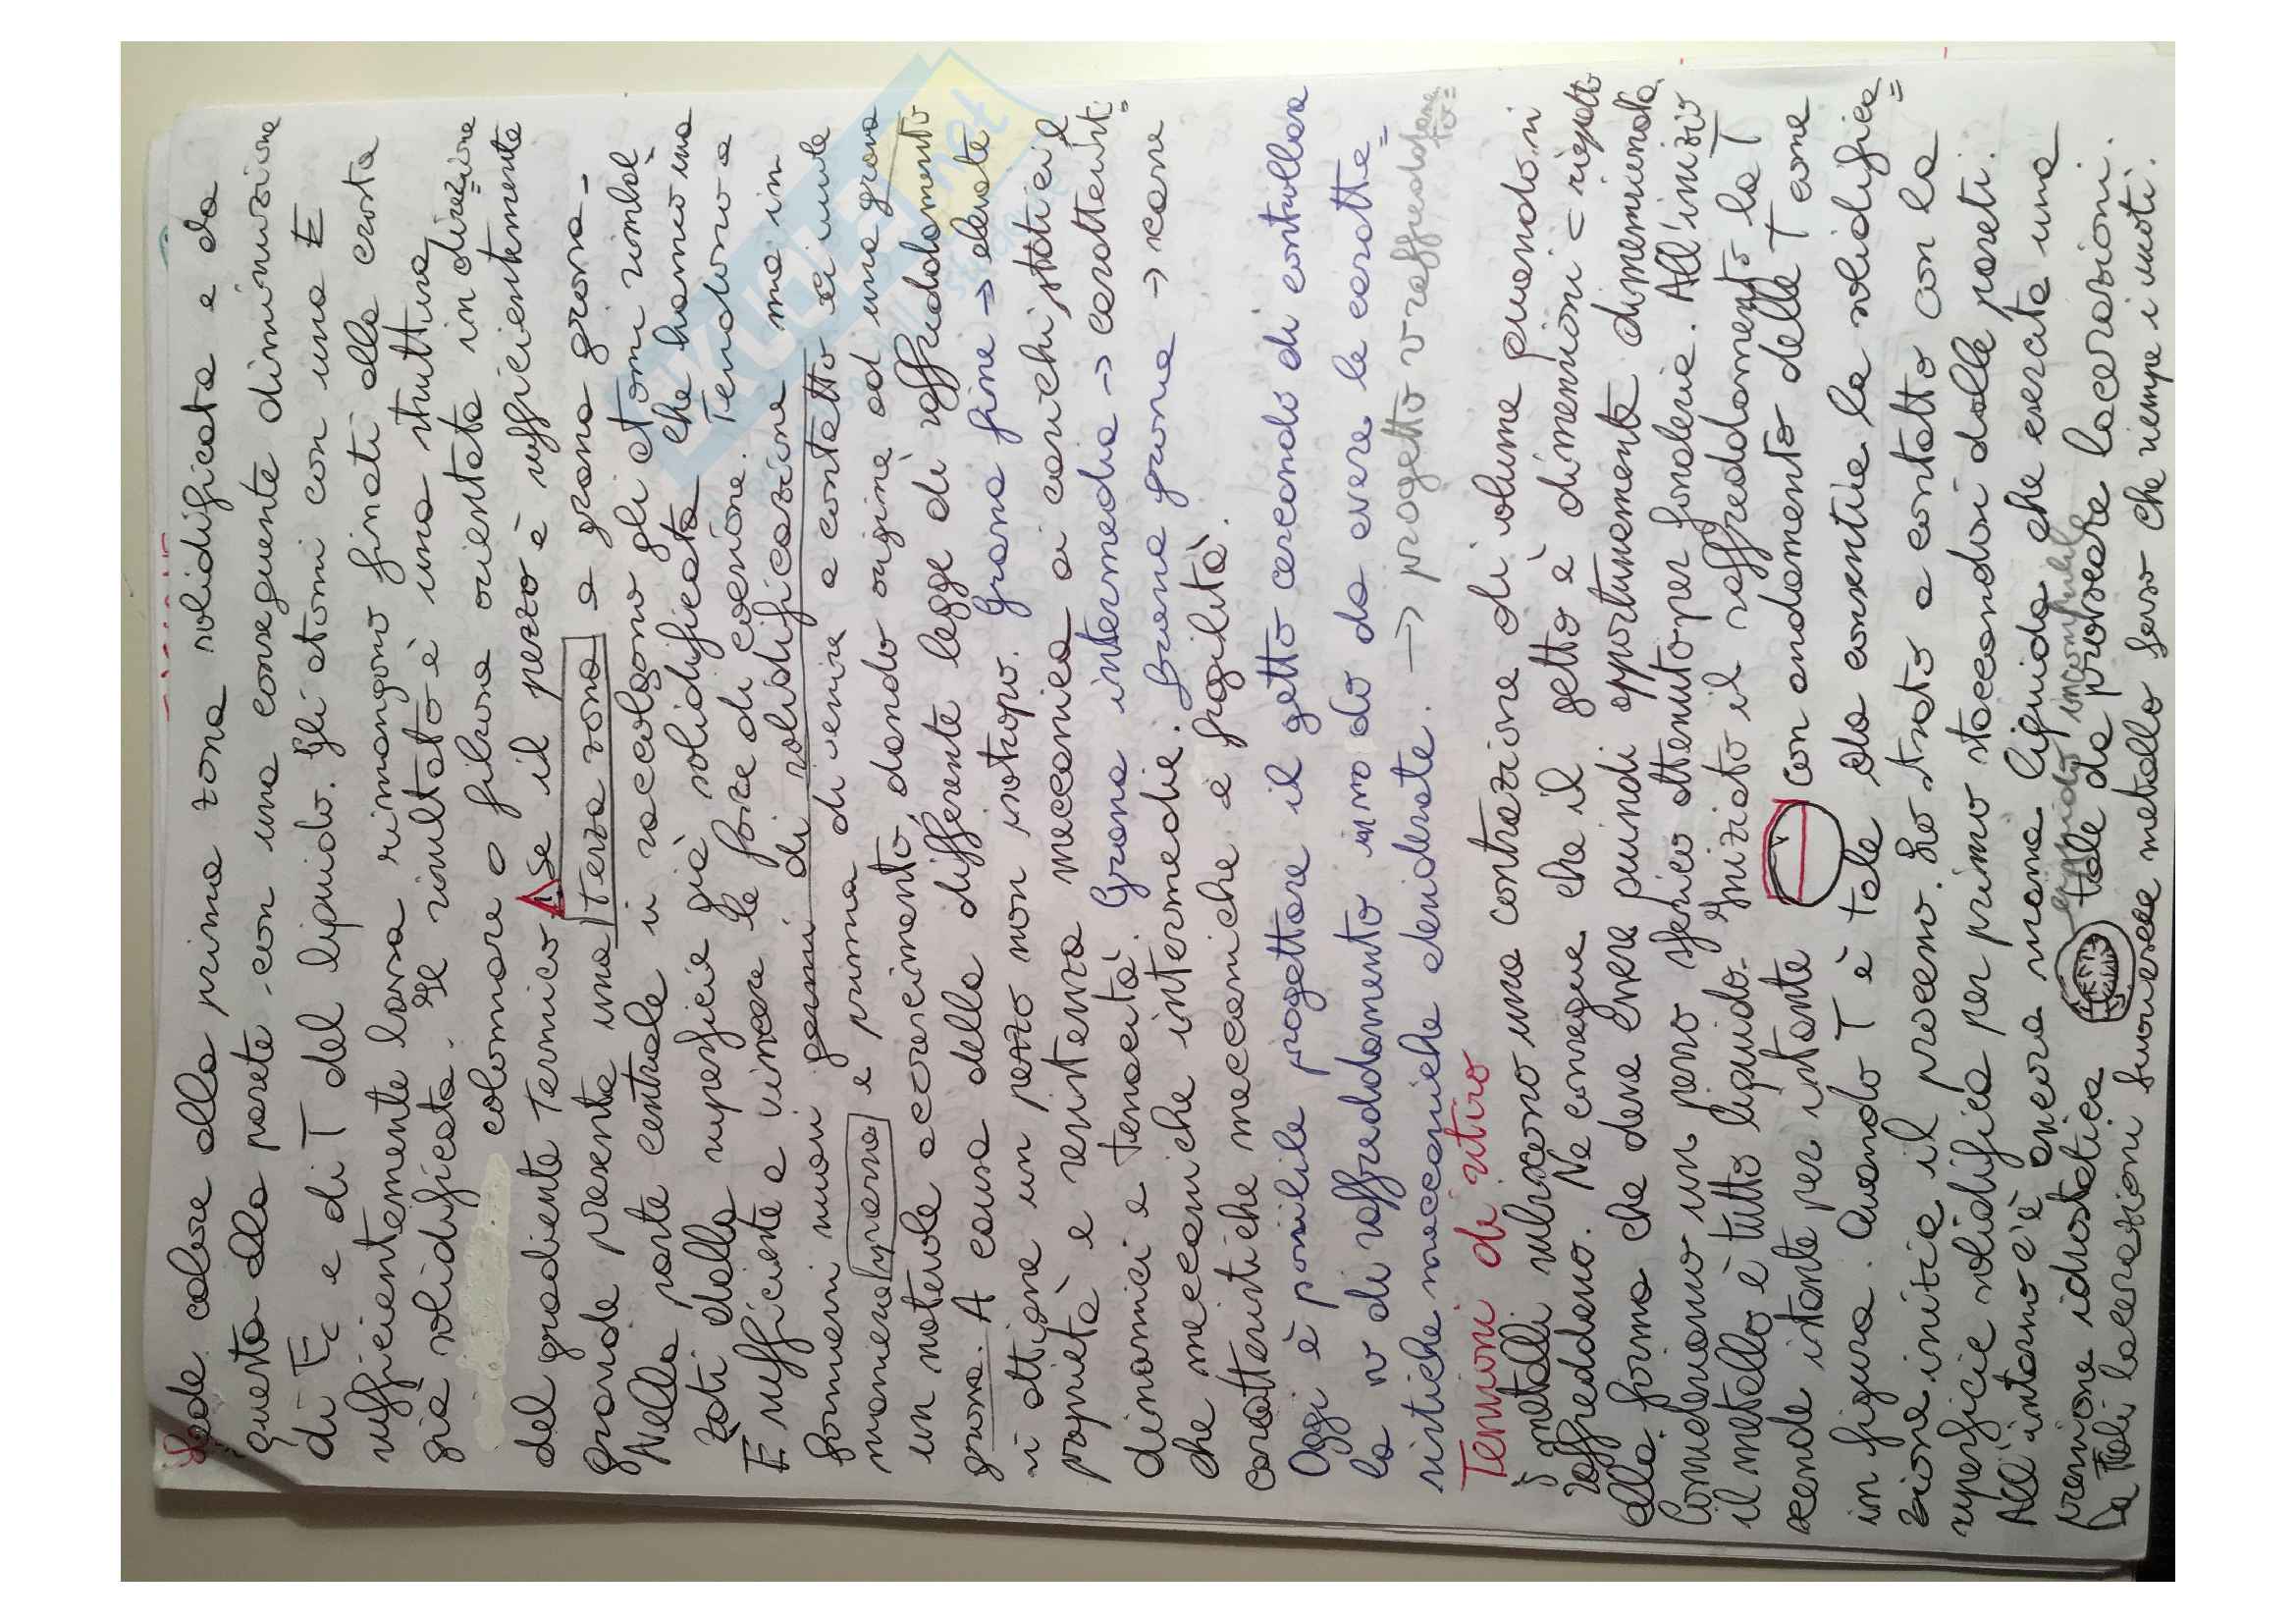 cede calore alla prima zona solidificata e da
questa alla parete con una conseguente diminuzione
di Ec e di T del liquido. Gli atomi con una E
sufficientemente bassa rimangono finati alla crosta
già solidificata. Il risultato è una struttura
colonnare o fibrosa orientata in direzione
del gradiente termico. Se il pezzo è sufficientemente
grande presenta una terza zona a grana grossa.
Nella parte centrale si raccolgono gli atomi rimbal=
zati dalla superficie già solidificata che hanno una
E sufficiente a vincere le forze di coesione. Tendono a
formarsi nuovi germi di solidificazione ma in
maniera sparsa e prima di venire a contatto si subi
un notevole accrescimento, dando origine ad una grana
grossa. A causa della differente legge di raffreddamento
si ottiene un pezzo non isotropo. Grana fine → elevate
proprietà e resistenza meccanica ai carichi statici e
dinamici e tenacità. Grana intermedia → caratteristi=
che meccaniche intermedie. Grana grossa → scarse
caratteristiche meccaniche e fragilità.
Oggi è possibile progettare il getto cercando di controllare
la v di raffreddamento in modo da avere le caratte=
ristiche meccaniche desiderate. → progetto raffreddame
to=
Tensioni di ritiro
I metalli subiscono una contrazione di volume quando si
raffreddano. Ne consegue che il getto è dimensioni < rispetto
alla forma che deve essere quindi opportunamente dimensionata.
Consideriamo un pezzo sferico ottenuto per fonderia. All'inizio
il metallo è tutto liquido. Iniziato il raffreddamento la T
scende istante per istante con andamento delle T come
in figura. Quando T è tale da consentire la solidifica=
zione inizia il processo. Lo strato a contatto con la
superficie solidifica per primo staccandosi dalle pareti.
All'interno c'è ancora massa liquida che esercita una
liquido incompribil
pressione idrostatica tale da provocare lacerazioni.
Da tali lacerazioni fuoriesce metallo fuso che riempe i vuoti.